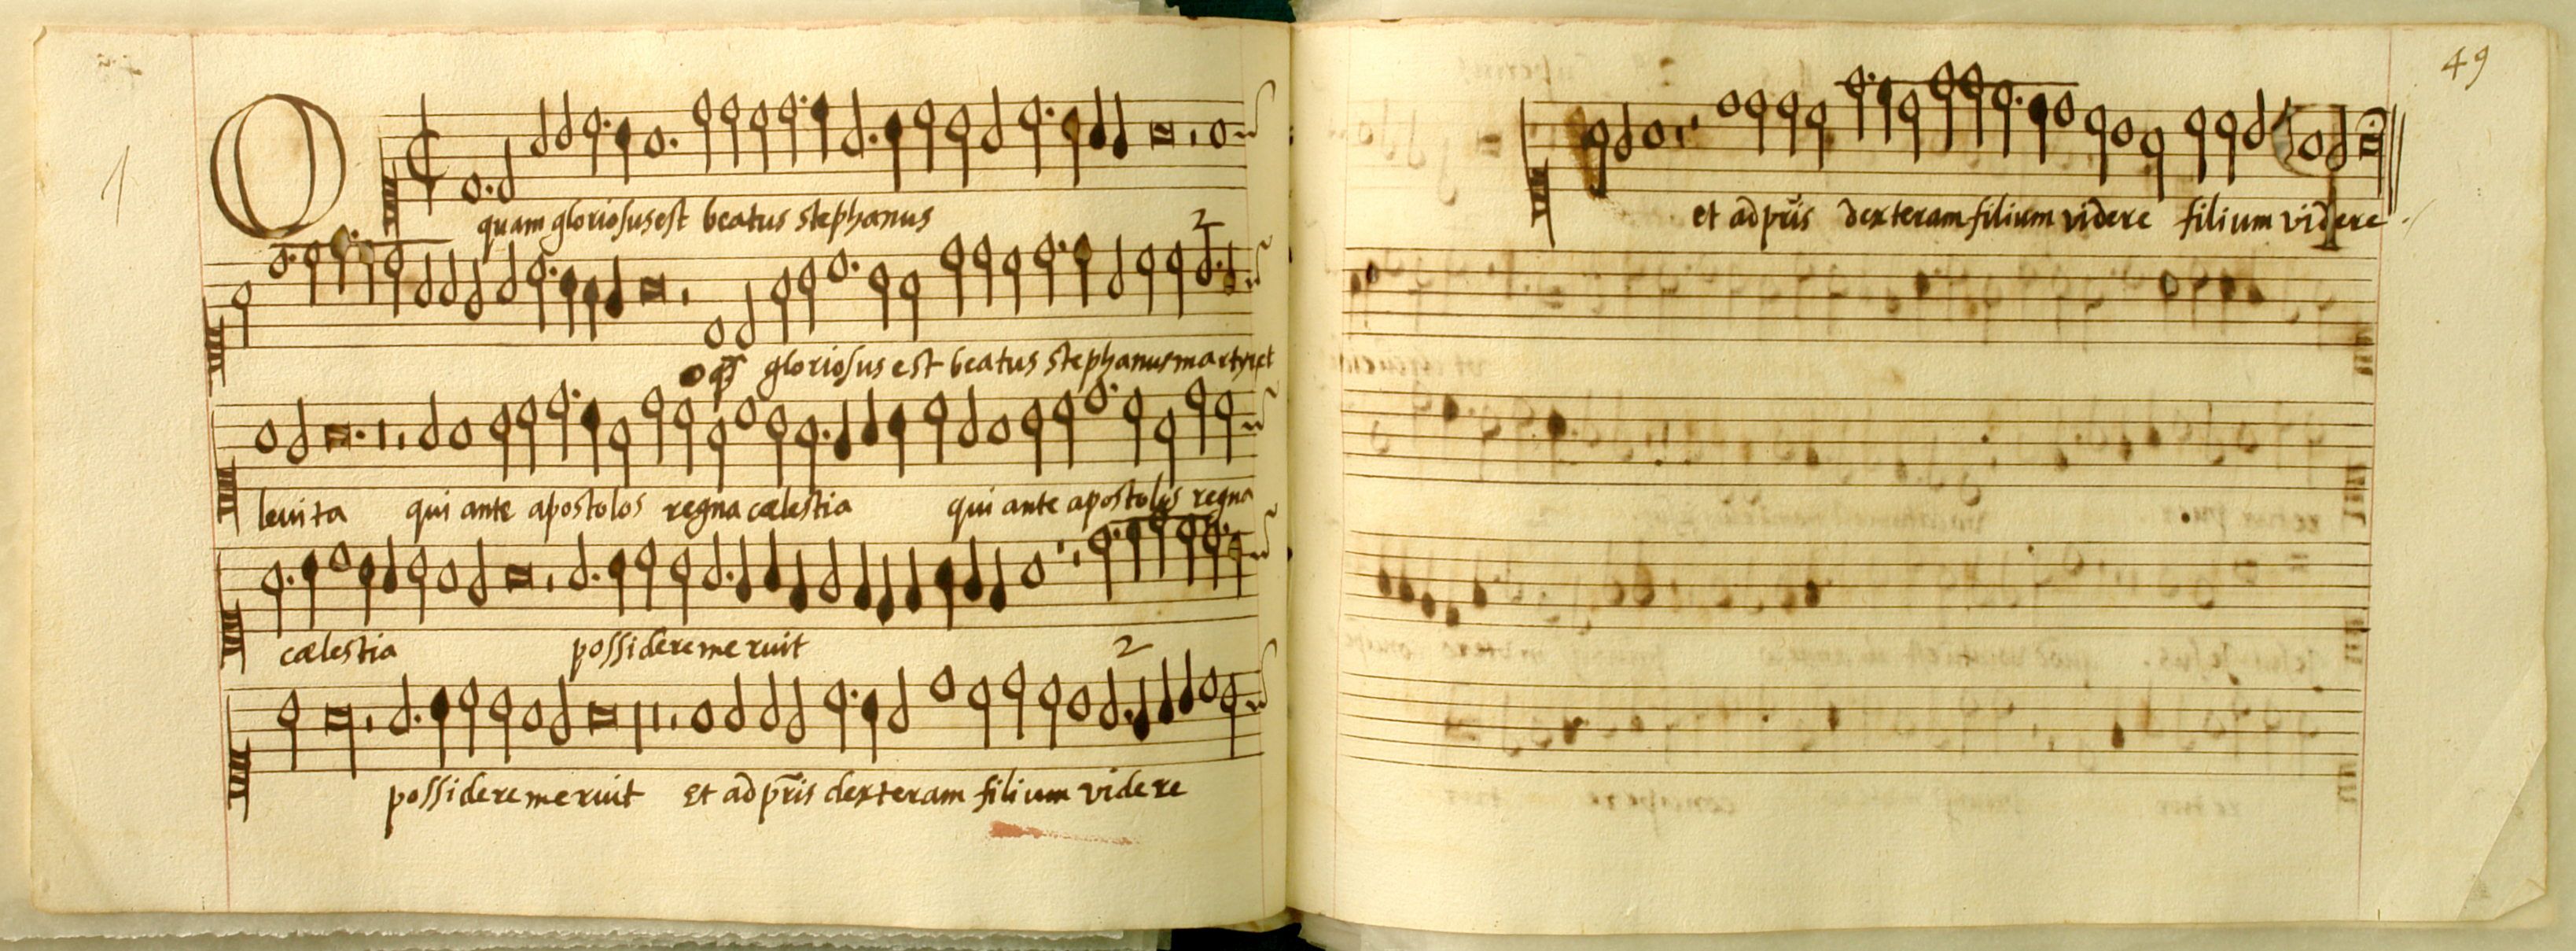 1
O
quam gloriosus est beatus stephanus
2
gloriosus est beatus stephanus martyr et
levita qui ante apostolos regna cælestia qui ante apostolos regna
cælestia possidere meruit
2
possidere meruit et ad p̄ris dexteram filium videre
49
et ad p̄ris dexteram filium videre filium videre